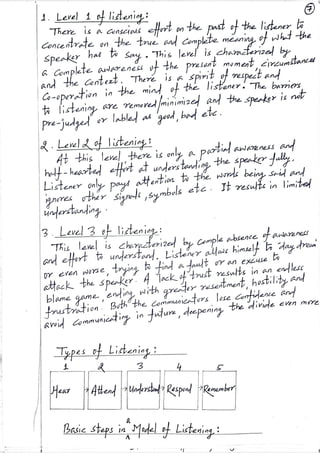 7
1. Level 1 of listening:
There is a conscious effort on the part of the listener to
concentrate on the true and complete meaning of what the
speaker has to say. This level is characterized by
a complete awareness of the present moment, circumstances
and the context. There is a spirit of respect and
co-operation in the mind of the listener. The barriers
to listening are removed/minimized and the speaker is not
pre-judged or labled as good, bad etc.
2. Level 2 of listening:
At this level there is only a partial awareness and
half-hearted effort at understanding the speaker fully.
Listener only pays attention to the words being said and
ignores other signals, symbols etc. It results in limited
understanding.
3. Level 3 of listening:
This level is characterized by comple absence of awareness
and effort to understand. Listener allows himself to day dream
or even worse, trying to find a fault or an excuse to
attack the speaker. A lack of trust results in an endless
blame game, ending with greater resentment, hostility and
frustration. Both the communicators lose confidence and
avoid communicating in future, deepening the divide even more
Types of Listening:
1 2 3 4 5
Hear → Attend → Understand → Respond → Remember
Basic steps in a Model of Listening: